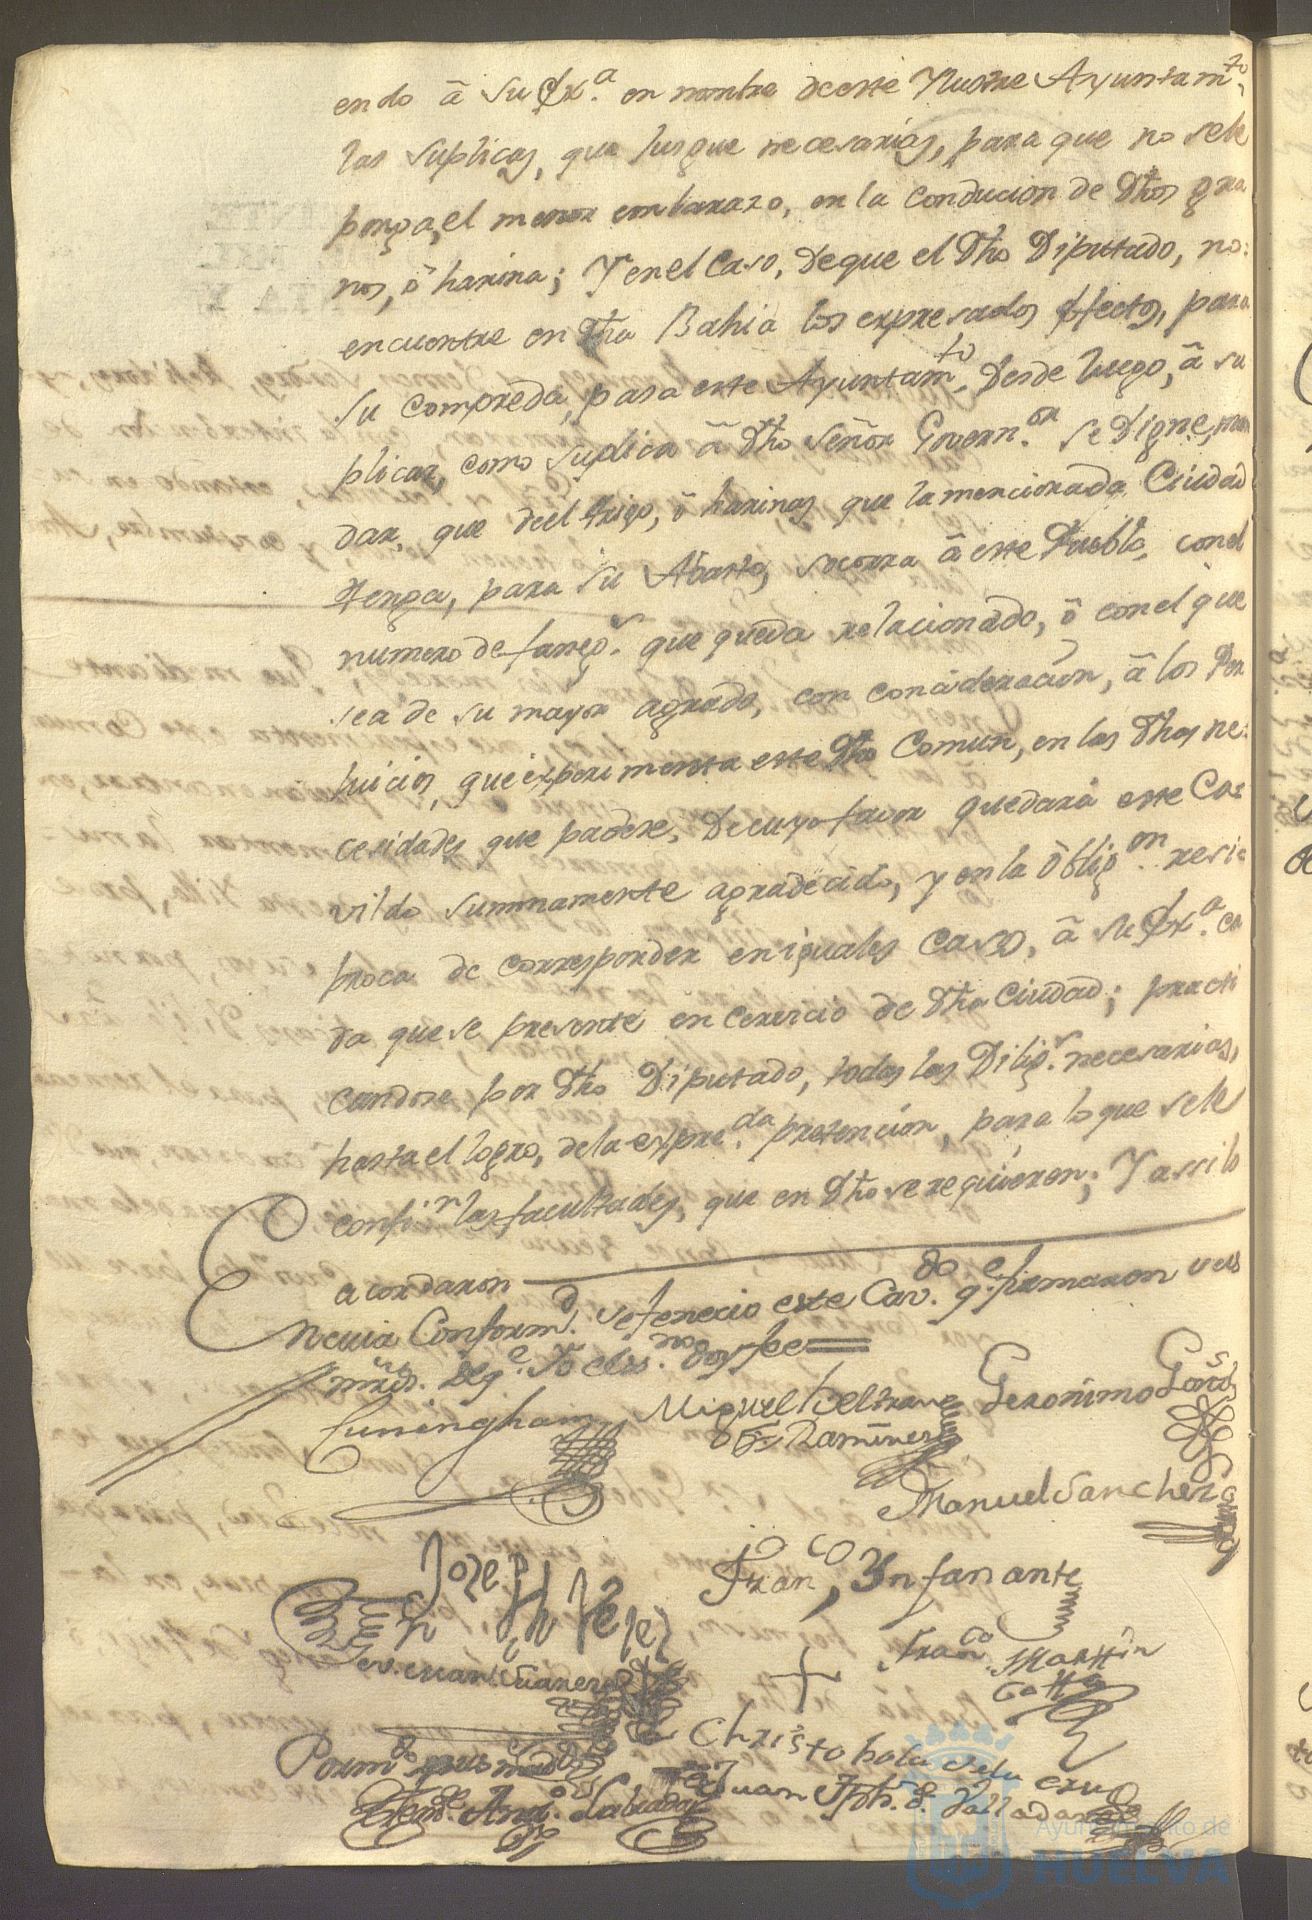 endo â su Exª. en nombre de este Yllustre Ayuntamto.
las suplicas, que jusgue necesarias, para que no sele
ponga, el menor embarazo, en la conducion de Dhos gra
nos, ô harina; Y en el Caso, de que el Dho Diputado, no:
encuentre en Dha Bahia los expresados efectos, para
su compreda, pasa este Ayuntamto. desde luego, â su
plicar, como suplica â Dho señor Governor. se Digne, man
dar, que del trigo, ô harinas que la mencionada Ciudad
tenga, para su Abasto, socorra â este Pueblo, con el
numero de fanegs. que queda relacionado, ô con el que
sea de su mayor agrado, con concideracion, â los Per
juicios, que experimenta este Dho Comun, en las Dhas ne:
cesidades que padese, De cuyo favor quedará este Ca=
vildo summamente agradecido, y en la Obligon. resi=
proca de corresponder en iguales casos, â su Exª. ca
da que se presente en cervicio de Dha Ciudad; practi
candose por Dho Diputado, todas las Diligs. necesarias,
hasta el logro, de la expreda. pretencion, para lo que sele
confirn las facultades, que en Dho se requieren; Y assi lo
acordaron
En cuia Conformd. se fenecio este Cavdo. qe. firmaron sus
mrds. De qe. Yo el ssno. doy fee=
Cuningham
Miguel Beltran
Ramires
Geronimo Garcs
Manuel Sanchez
Joseph Lopez
Franco, Infanante
Franco. Marttin
Christobal de la cruz
Por md de sus mrds
Juan
Labrada
Ayuntamiento de
HUELVA